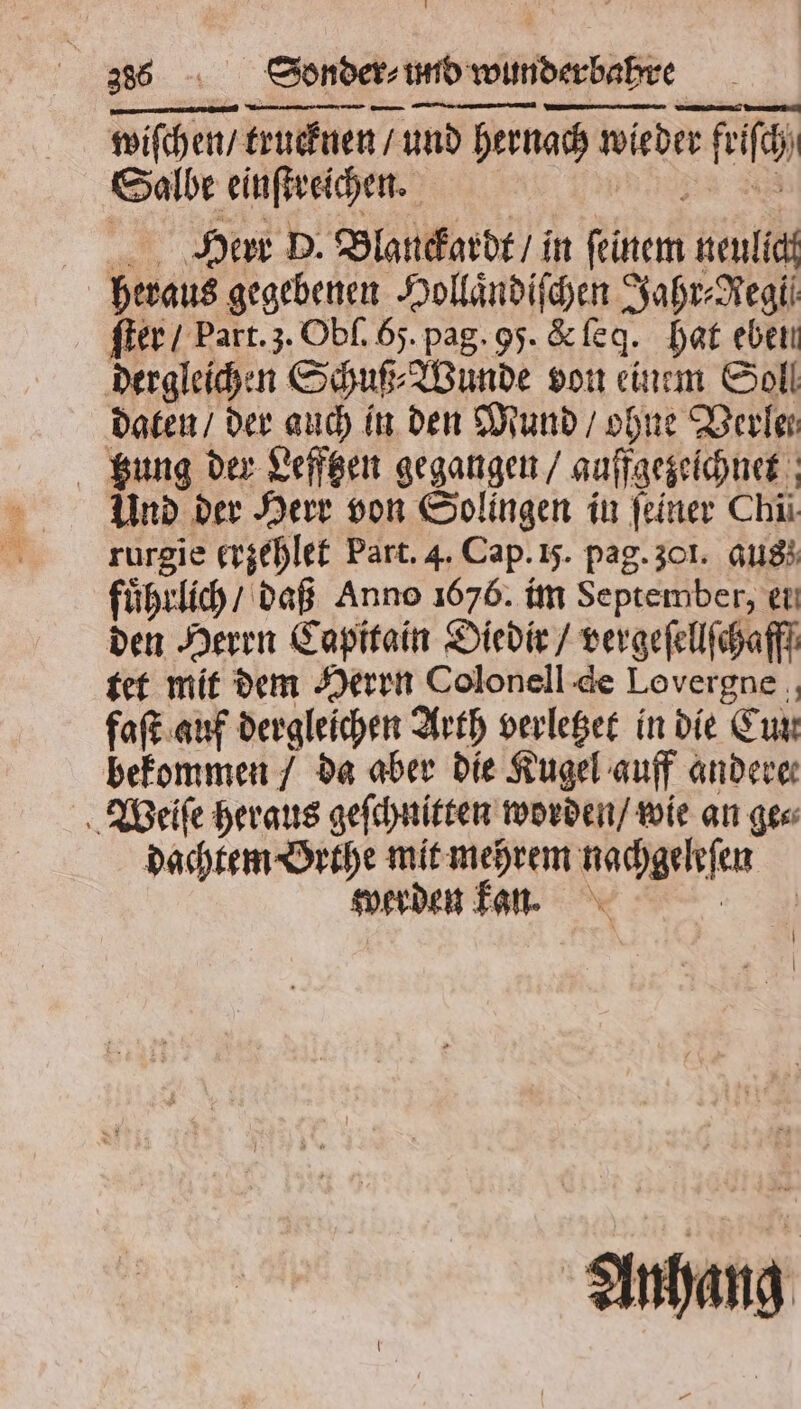 386 Sonder⸗ und wunderbahre
wiſchen / trucknen / und hernach wieder friſch
Salbe einſtreichen.
Herr D. Blanckardt / in ſeinem neulich
heraus gegebenen Hollaͤndiſchen Jahr⸗Regi⸗
ſter / Part. 3. Obſ. 65. pag. 95. & ſeq. hat eben
dergleichen Schuß⸗Wunde von einem Sol⸗
daten / der auch in den Mund / ohne Verle⸗
tzung der Lefftzen gegangen / auffgezeichnet ;
Und der Herr von Solingen in ſeiner Chi⸗
rurgie erzehlet Part. 4. Cap. 15. pag. 301. aus⸗
fuͤhrlich / daß Anno 1676. im September, er
den Herrn Capitain Diedir / vergeſellſchaff⸗
tet mit dem Herrn Colonell de Lovergne ,
faſt auf dergleichen Arth verletzet in die Cur
bekommen / da aber die Kugel auff andere
Weiſe heraus geſchnitten worden / wie an ge⸗
dachtem Orthe mit mehrem nachgeleſen
werden kan.
Anhang